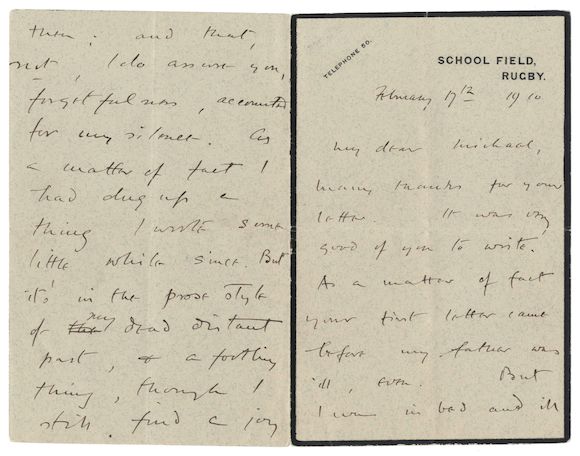 TELEPHONE 50.
SCHOOL FIELD,
RUGBY.
February 17th 1910
My dear Michael,
Many thanks for your
letter. It was very
good of you to write.
As a matter of fact
your first letter came
before my father was
ill, even. But
I was in bed and ill
then: and that,
not, I do assure you,
forgetfulness, accounted
for my silence. As
a matter of fact I
had dug up a
thing I wrote some
little while since. But
it's in the prose style
of my dead distant
past, & a footling
thing, though I
still find a joy